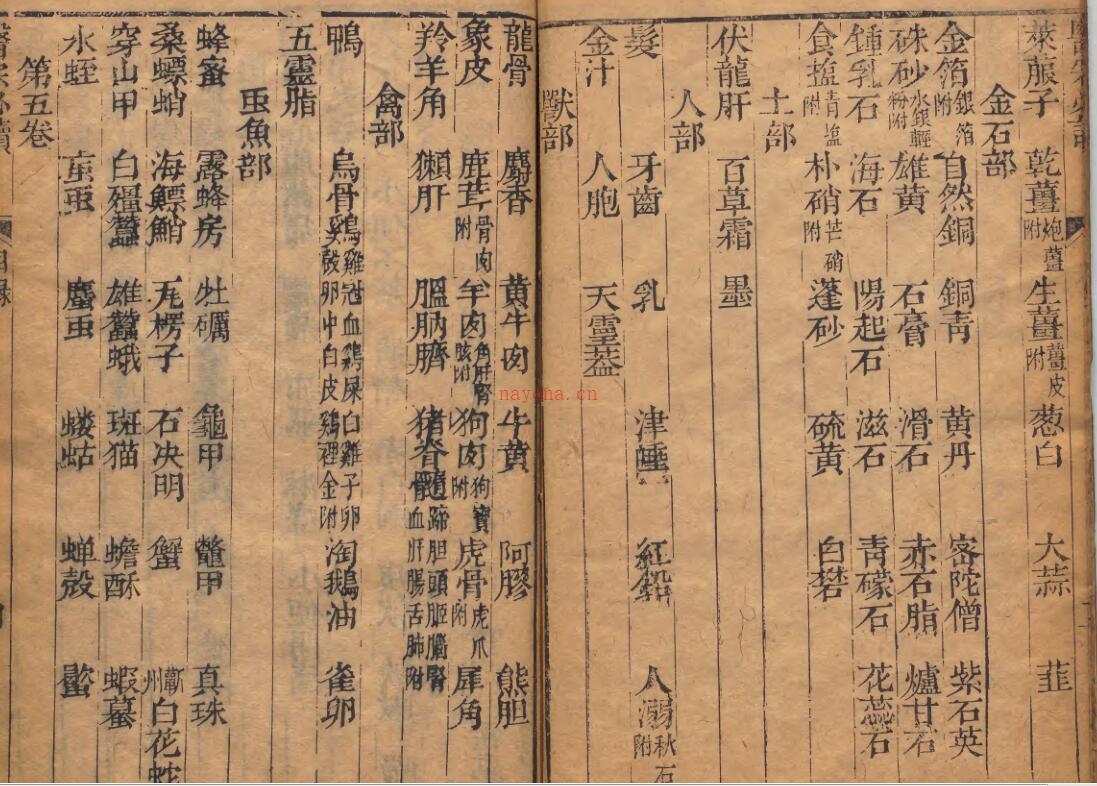 萊菔子 乾薑炮薑附 生薑薑皮附 葱白 大蒜 韭
金石部
金箔銀箔附 自然銅 銅青 黄丹 密陀僧 紫石英
硃砂水銀輕粉附 雄黄 石膏 滑石 赤石脂 爐甘石
鍾乳石 海石 陽起石 滋石 青礞石 花蕊石
食盐青盐附 朴硝芒硝附 蓬砂 硫黄 白礬
土部
伏龍肝 百草霜 墨
人部
髮 牙齒 乳 津唾 紅鉛 人溺秋石附
金汁 人胞 天靈盖
獸部
龍骨 麝香 黄牛肉 牛黄 阿膠 熊胆
象皮 鹿茸骨肉附 羊肉角肝腎胲附 狗肉狗寶附 虎骨虎爪附 犀角
羚羊角 獺肝 膃肭臍 猪脊髓蹄胆頭脏腦腎骨血肝腸舌肺附
禽部
鴨 烏骨鷄雞冠血鷄屎白雞子卵殻卵中白皮鷄裡金附 淘鵝油 雀卵
五靈脂
虫魚部
蜂蜜 露蜂房 牡礪 龜甲 鼈甲 真珠
桑螵蛸 海鰾鮹 瓦楞子 石决明 蟹 蘄州白花蛇
穿山甲 白殭蠶 雄蠶蛾 斑猫 蟾酥 蝦蟇
水蛭 䗪虫 蝼蛄 蝉殻
第五卷
目録
nayona.cn